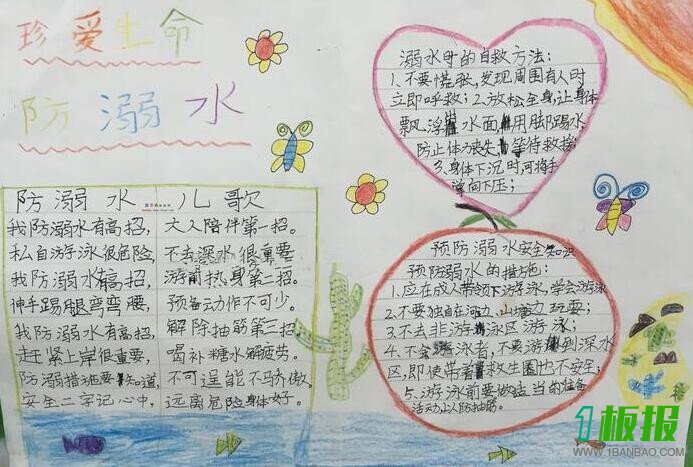 珍爱生命
防溺水
防溺水儿歌
我防溺水有高招, 大人陪伴第一招。
私自游泳很危险, 不去深水很重要
我防溺水有高招, 游前热身第二招。
伸手踢腿弯弯腰, 预备动作不可少。
我防溺水有高招, 解除抽筋第三招
赶紧上岸很重要, 喝补糖水解疲劳。
防溺措施要知道, 不可逞能不骄傲。
安全二字记心中, 远离危险身体好。
溺水时的自救方法:
1、不要慌张,发现周围有人时
立即呼救;2、放松全身,让身体
飘浮 水面,用脚踢水,
防止体力丧失,等待救援;
3、身体下沉时可将手
掌向下压;
预防溺水安全知识
预防溺水的措施:
1、应在成人带领下游泳,学会游泳
2、不要独自在河边、山塘边玩耍;
3、不去非游泳区游泳;
4、不会游泳者,不要游到深水
区,即使带着救生圈也不安全;
5、游泳前要做适当的准备
活动,以防抽筋。
1板报
WWW.1BANBAO.COM